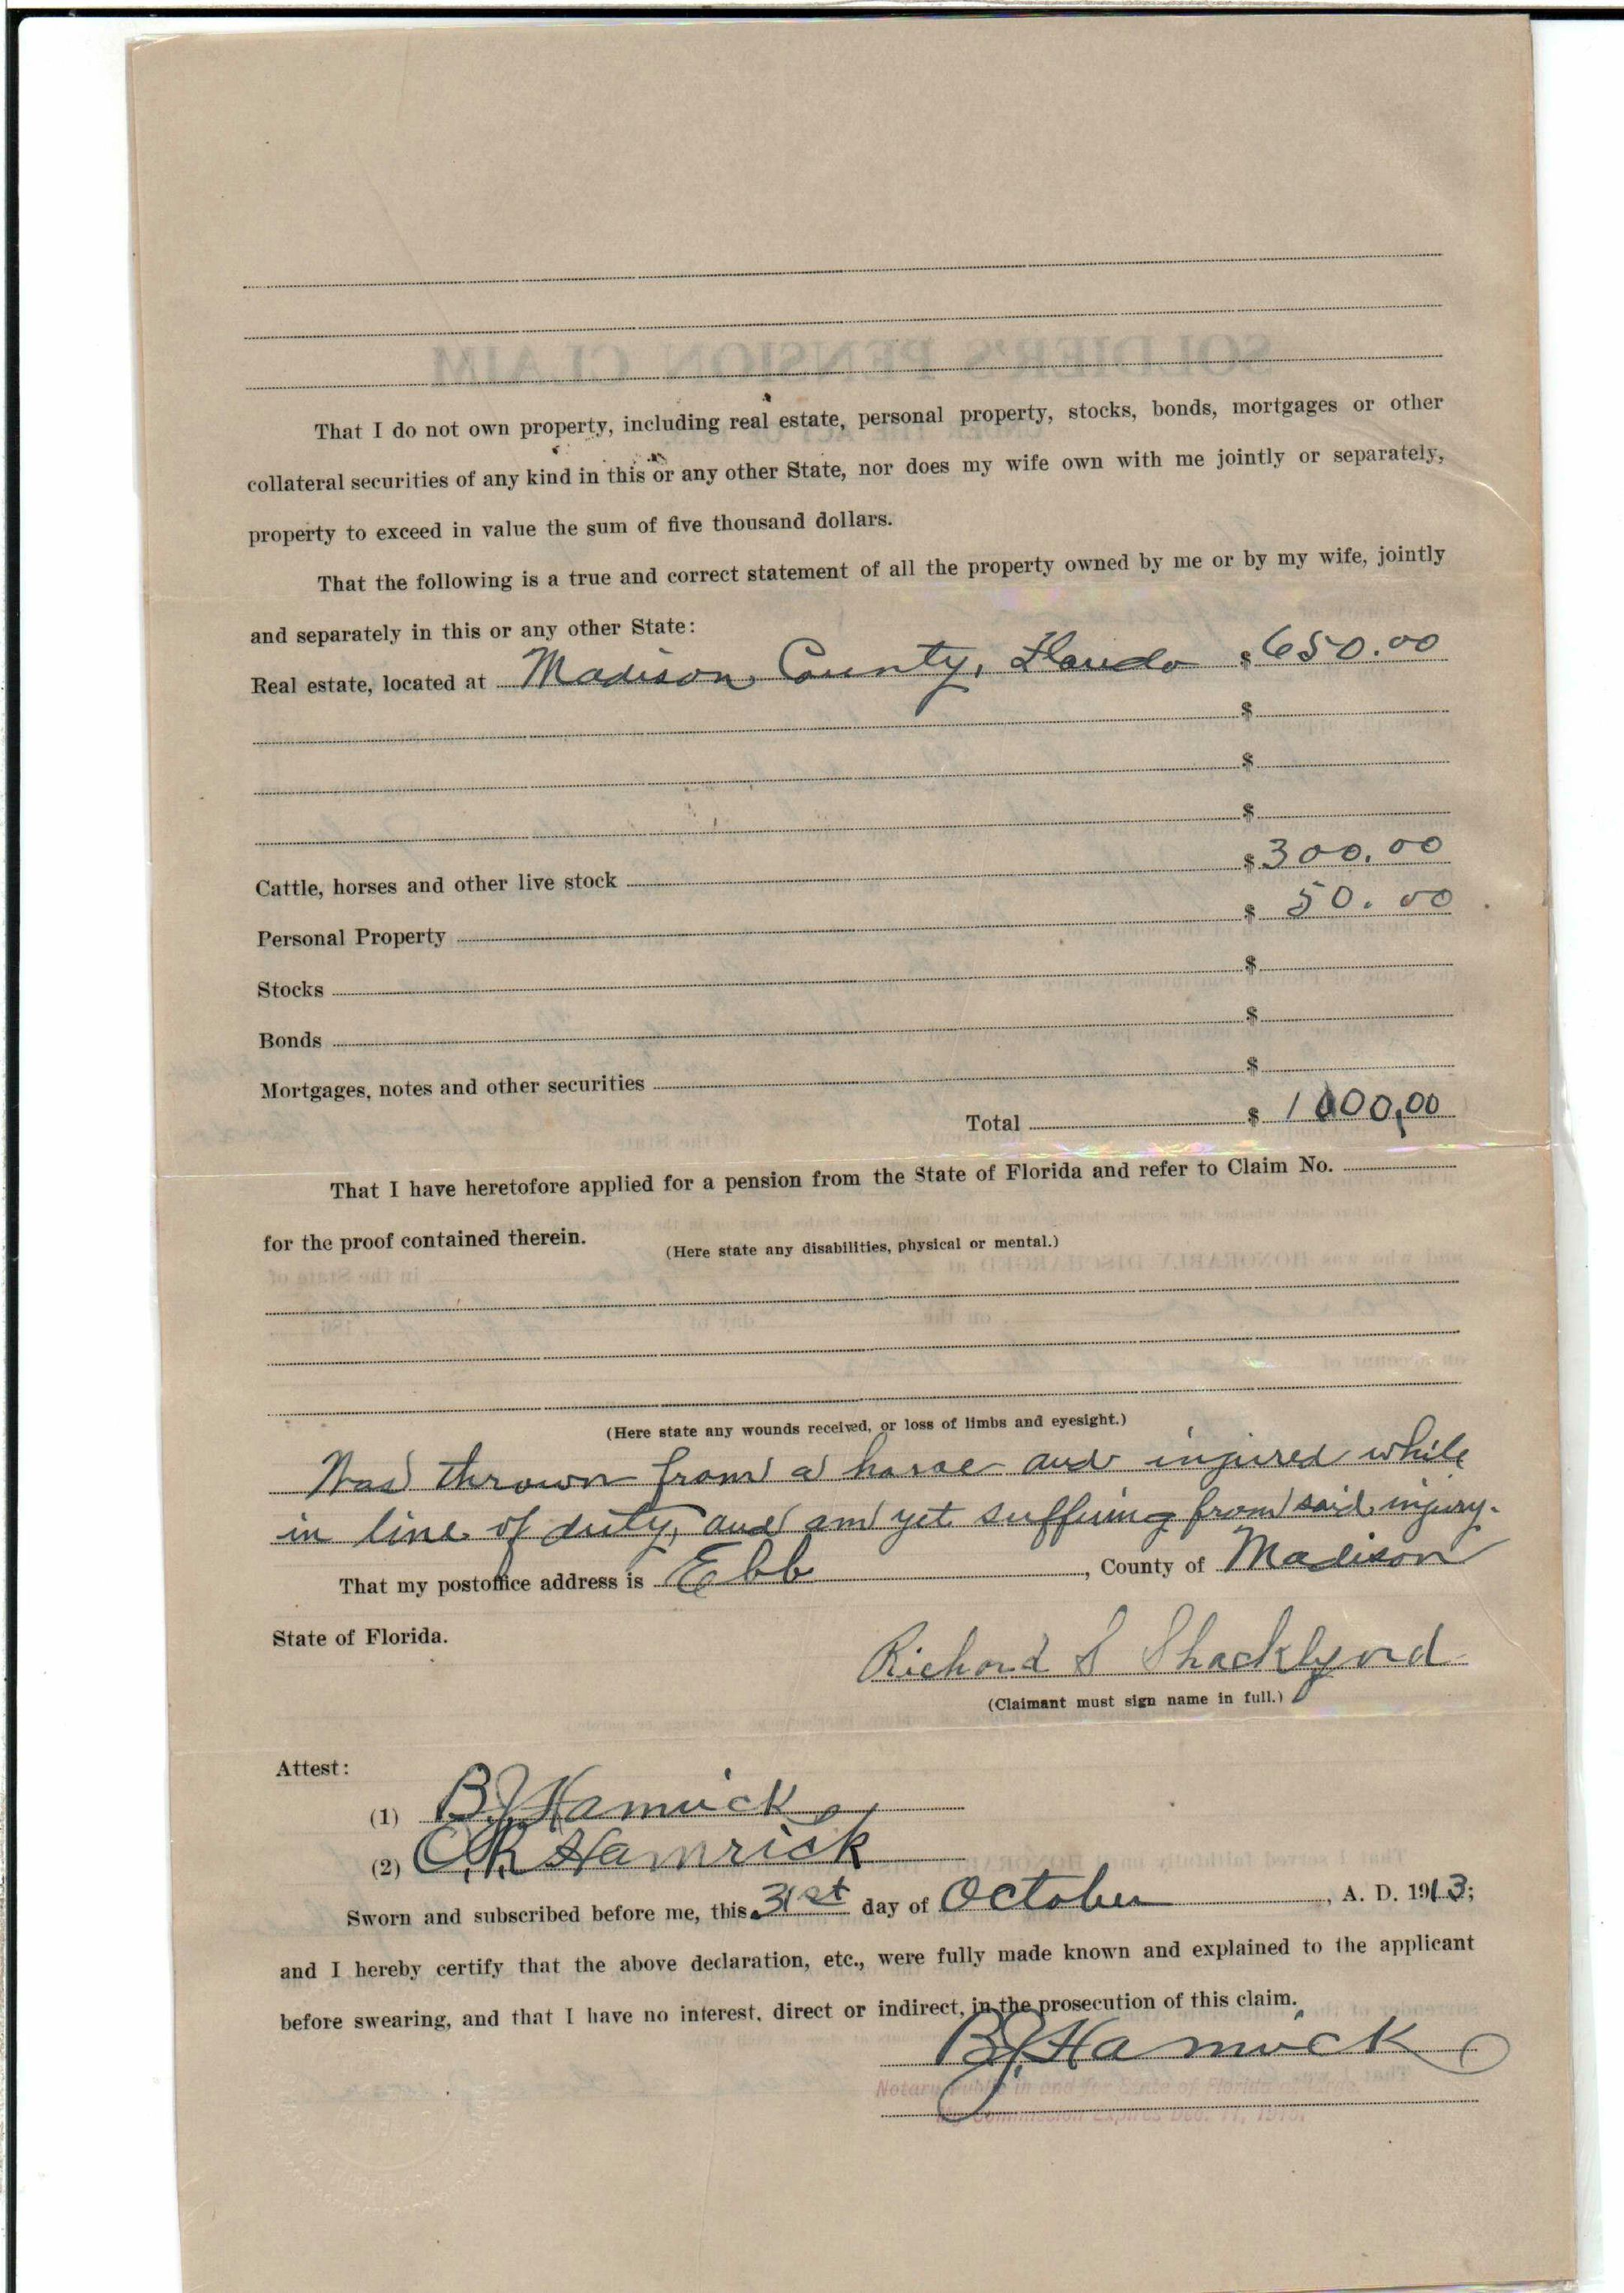 That I do not own property, including real estate, personal property, stocks, bonds, mortgages or other
collateral securities of any kind in this or any other State, nor does my wife own with me jointly or separately,
property to exceed in value the sum of five thousand dollars.
That the following is a true and correct statement of all the property owned by me or by my wife, jointly
and separately in this or any other State:
Real estate, located at Madison County, Florida $650.00
$
$
$
Cattle, horses and other live stock $300.00
Personal Property $ 50.00
Stocks $
Bonds $
Mortgages, notes and other securities $
Total $ 1000,00
That I have heretofore applied for a pension from the State of Florida and refer to Claim No.
for the proof contained therein.
(Here state any disabilities, physical or mental.)
(Here state any wounds received, or loss of limbs and eyesight.)
Was thrown from a horse and injured while
in line of duty, and am yet suffering from said injury.
That my postoffice address is Ebb, County of Madison
State of Florida.
Richard S Shacklford
(Claimant must sign name in full.)
Attest:
(1) B.J. Hamrick
(2) C.R. Hamrick
Sworn and subscribed before me, this 31st day of October, A. D. 1913;
and I hereby certify that the above declaration, etc., were fully made known and explained to the applicant
before swearing, and that I have no interest, direct or indirect, in the prosecution of this claim.
B.J. Hamrick
Notary Public in and for State of Florida at Large.
Commission Expires Dec. 11,